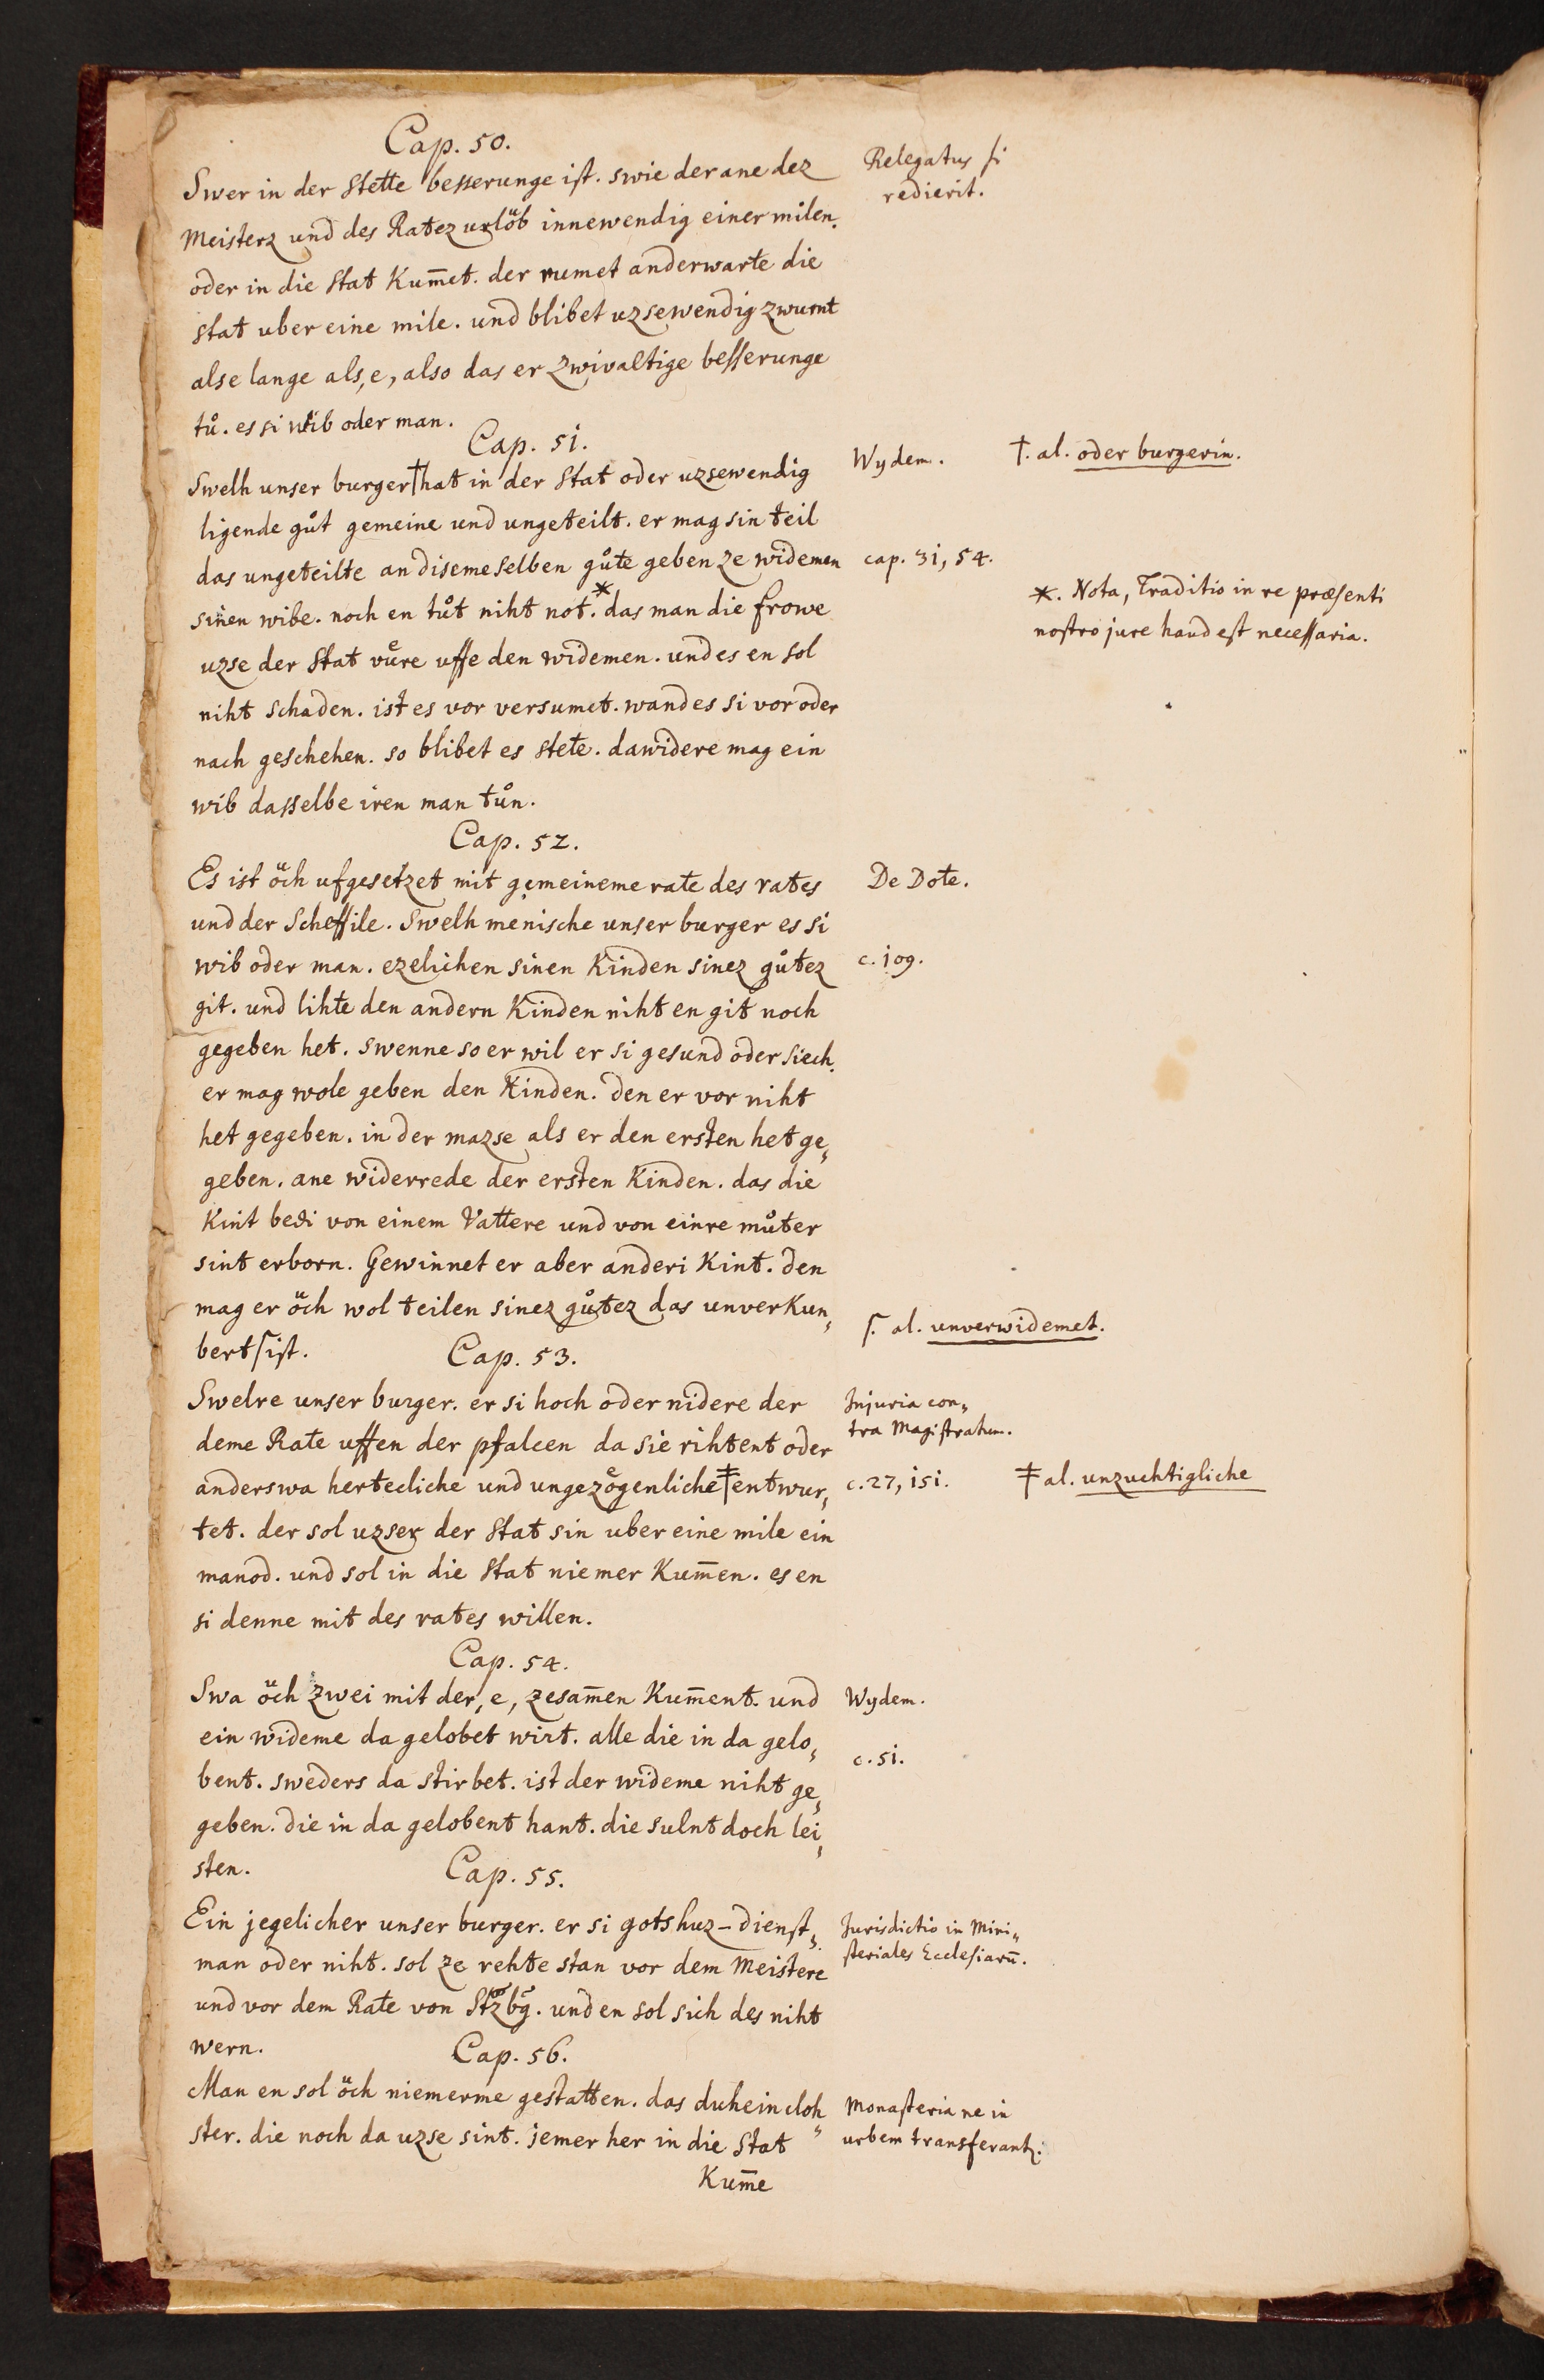 Cap. 50.
Swer in der Stette besserunge ist. swie der ane dez
Meisterz und des Ratez urlöb innewendig einer milen.
oder in die stat Kum̄et. der rumet anderwarte die
stat uber eine mile. und blibet uzsewendig zwurnt
alse lange als, e, also das er zwivaltige besserunge
tů. es si wib oder man.
Relegatus si
redierit.
Cap. 51.
Swelh unser burger † hat in der Stat oder uzsewendig
ligende gůt gemeine und ungeteilt. er mag sin teil
das ungeteilte an diseme selben gůte geben ze widemen
sinen wibe. noch en tůt niht not.* das man die frowe
uzse der Stat vůre uffe den widemen. und es en sol
niht schaden. ist es vor versumet. wand es si vor oder
nach geschehen. so blibet es stete. dawidere mag ein
wib dasselbe iren man tůn.
Wydem.
cap. 31, 54.
†. al. oder burgerin.
*. Nota, Traditio in re præsenti
nostro jure haud est necessaria.
Cap. 52.
Es ist öch ufgesetzet mit gemeineme rate des rates
und der Scheffile. Swelh menische unser burger es si
wib oder man. ezelichen sinen Kinden sinez gůtez
git. und lihte den andern Kinden niht en git noch
gegeben het. swenne so er wil er si gesund oder siech.
er mag wole geben den Kinden. den er vor niht
het gegeben. in der mazse als er den ersten het ge,
geben. ane widerrede der ersten Kinden. das die
Kint bedi von einem Vattere und von einre můter
sint erborn. Gewinnet er aber anderi Kint. den
mag er öch wol teilen sinez gůtez das unverkun,
bert ſ ist.
De Dote.
c. 109.
ſ. al. unverwidemet.
Cap. 53.
Swelre unser burger. er si hoch oder nidere der
deme Rate uffen der pfalcen da sie rihtent oder
anderswa hertecliche und ungezogenliche ‡ entwur,
tet. der sol uzser der Stat sin uber eine mile ein
manod. und sol in die Stat niemer Kum̄en. es en
si denne mit des rates willen.
Injuria con,
tra Magistratum.
c. 27, 151.
‡ al. unzuchtigliche
Cap. 54.
Swa öch zwei mit der, e, zesam̄en Kum̄ent. und
ein wideme da gelobet wirt. alle die in da gelo,
bent. sweders da stirbet. ist der wideme niht ge,
geben. die in da gelobent hant. die sulnt doch lei,
sten.
Wydem.
c. 51.
Cap. 55.
Ein jegelicher unser burger. er si gotshuz-dienst,
man oder niht. sol ze rehte stan vor dem Meistere
und vor dem Rate von Stzbg. und en sol sich des niht
wern.
Jurisdictio in Mini,
steriales Ecclesiarū.
Cap. 56.
Man en sol öch niemerme gestatten. das duhein cloh
ster. die noch da uzse sint. jemer her in die Stat
Kum̄e
Monasteria ne in
urbem transferant.